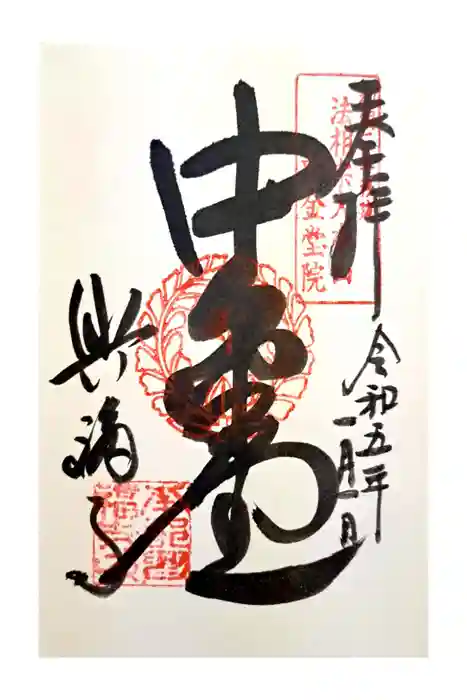 奉拝
令和五年
一月一日
法相宗大本山
中金堂院
中金堂
興福寺